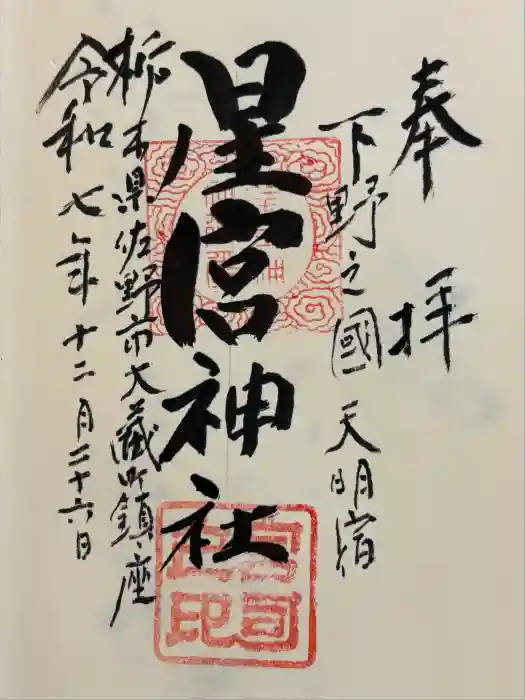 奉拝
下野之國天明宿
星宮神社
栃木県佐野市大蔵町鎮座
令和七年十二月二十六日
宮司之印